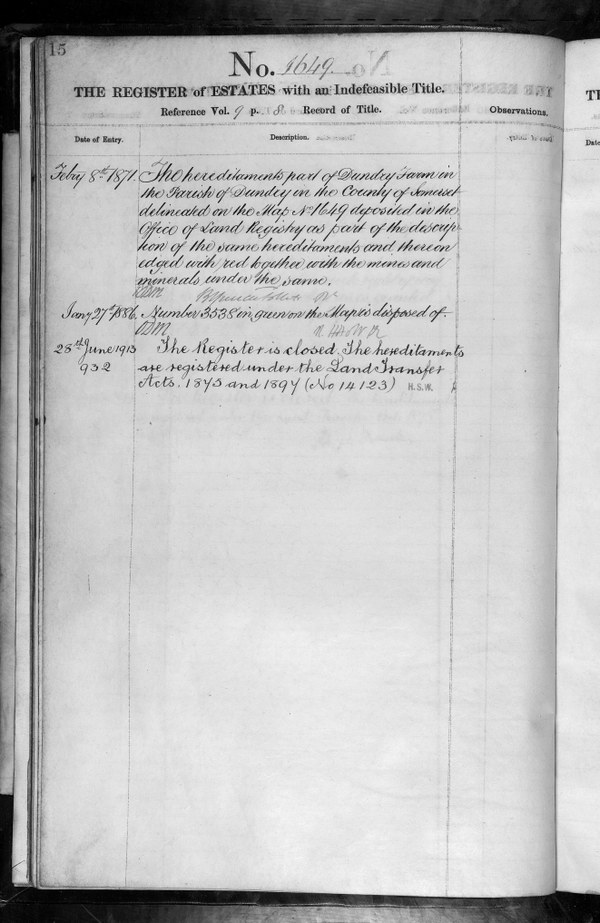 15
No. 1649.
THE REGISTER of ESTATES with an Indefeasible Title.
Reference Vol. 9 p. 8 Record of Title.
Observations.
Date of Entry.
Description.
Feby 8th 1871. The hereditaments part of Dundry Farm in
the Parish of Dundry in the County of Somerset
delineated on the Map No 1649 deposited in the
Office of Land Registry as part of the descrip-
tion of the same hereditaments and thereon
edged with red together with the mines and
minerals under the same.
Jany 27th 1886. Number 3538 in green on the Map is disposed of.
28th June 1913 The Register is closed. The hereditaments
932 are registered under the Land Transfer
Acts. 1875 and 1897 (No 14123) H.S.W.